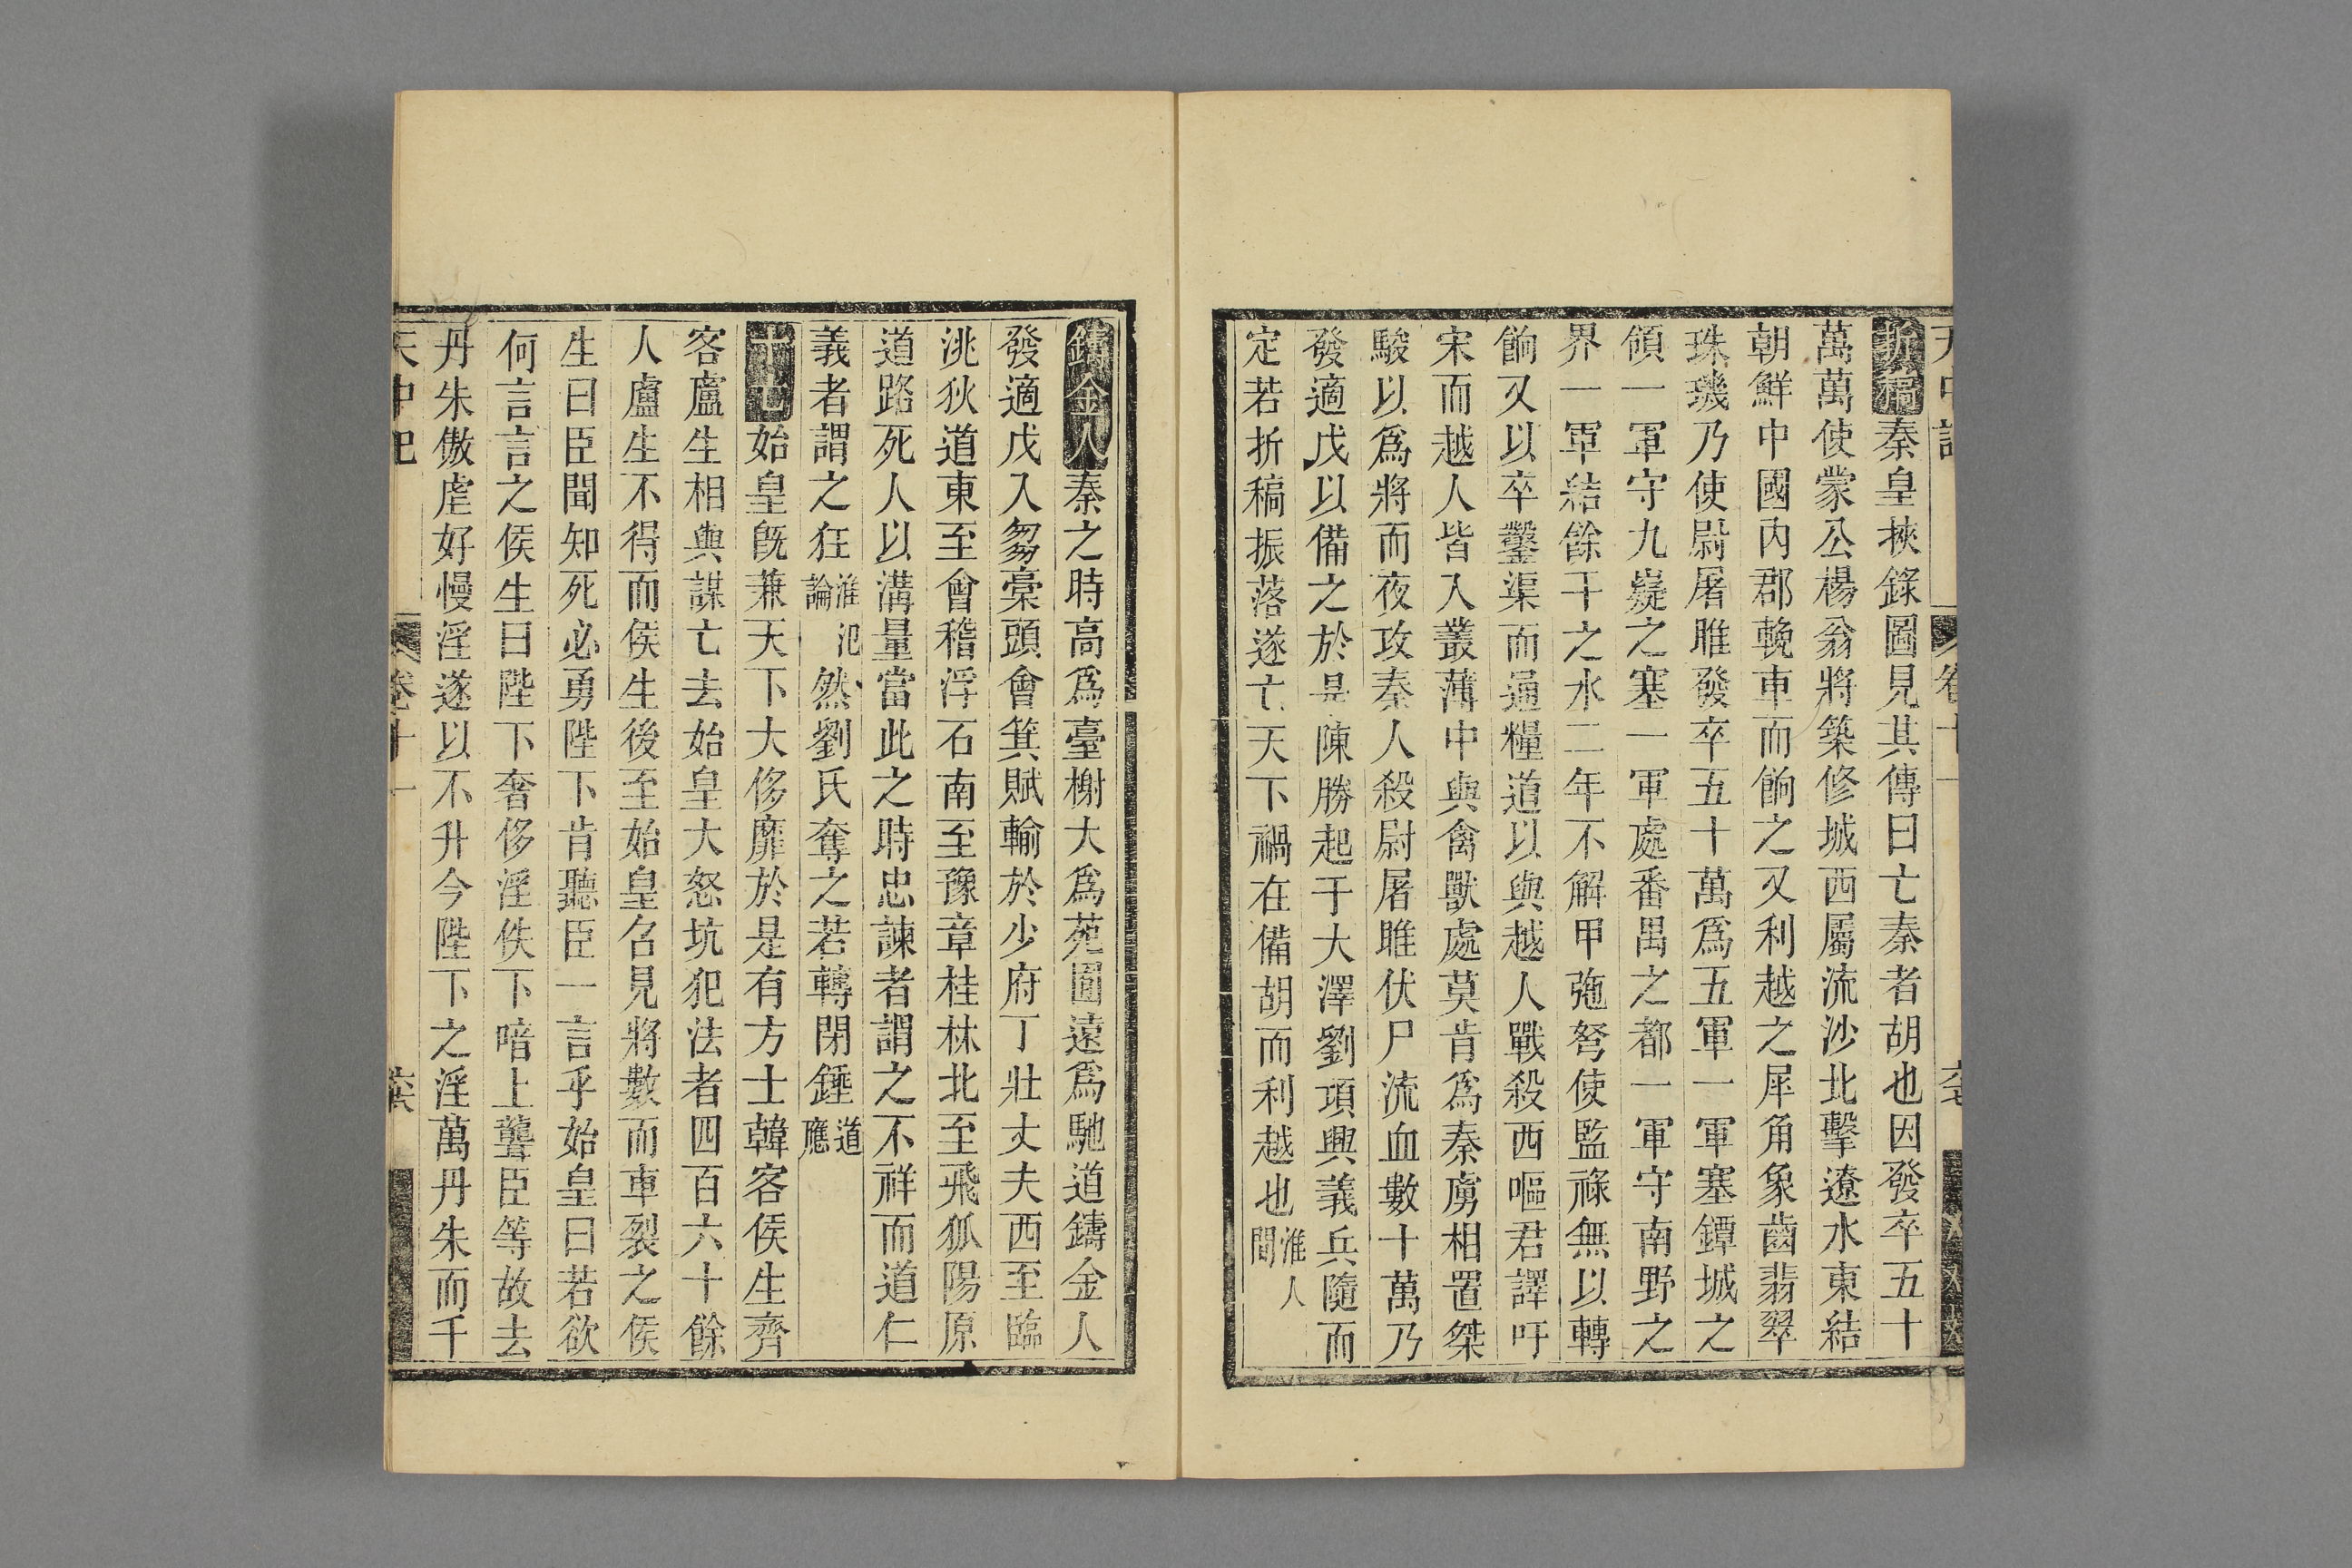 折稿秦皇挾錄圖見其傳曰亡秦者胡也因發卒五十
萬萬使蒙公楊翁將築修城西屬流沙北擊遼水東結
朝鮮中國內郡輓車而餉之又利越之犀角象齒翡翠
珠璣乃使尉屠睢發卒五十萬爲五軍一軍塞鐔城之
領一軍守九嶷之塞一軍處番禺之都一軍守南野之
界一軍結餘干之水三年不解甲弛弩使監祿無以轉
餉又以卒鑿渠而通糧道以與越人戰殺西嘔君譯吁
宋而越人皆入叢薄中與禽獸處莫肯爲秦虜相置桀
駿以爲將而夜攻秦人殺尉屠睢伏尸流血數十萬乃
發適戍以備之於是陳勝起于大澤劉項興義兵隨而
定若折稿振落遂亡天下禍在備胡而利越也淮人間
鑄金人秦之時高爲臺榭大爲苑囿遠爲馳道鑄金人
發適戍入芻稾頭會箕賦輸於少府丁壯丈夫西至臨
洮狄道東至會稽浮石南至豫章桂林北至飛狐陽原
道路死人以溝量當此之時忠諫者謂之不祥而道仁
義者謂之狂淮氾論然劉氏奪之若轉閉錘道應
十也始皇既兼天下大侈靡於是有方士韓客侯生齊
客盧生相與謀亡去始皇大怒坑犯法者四百六十餘
人盧生不得而侯生後至始皇名見將數而車裂之侯
生曰臣聞知死必勇陛下肯聽臣一言乎始皇曰若欲
何言言之侯生曰陛下奢侈淫佚下喑上聾臣等故去
丹朱傲虐好慢淫遂以不升今陛下之淫萬丹朱而千
天中記 卷十一